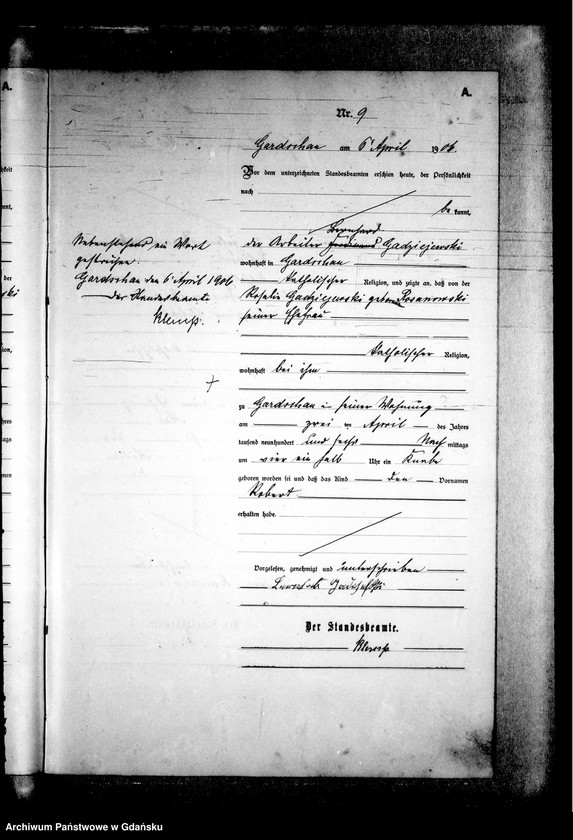 A.
A.
Nr. 9
Gardschau am 6' April 1906.
Vor dem unterzeichneten Standesbeamten erschien heute, der Persönlichkeit
nach
be kannt,
Bernhard
der Arbeiter Ferdinand Gadziejewski
wohnhaft in Gardschau
katholischer Religion, und zeigte an, daß von der
Rosalie Gadziejewski geborenen Rosanowski
seiner Ehefrau
katholischer Religion,
wohnhaft bei ihm
zu Gardschau in seiner Wohnung
am zwei ten April des Jahres
tausend neunhundert und sechs Nach mittags
um vier ein halb Uhr ein Knabe
geboren worden sei und daß das Kind den Vornamen
Robert
erhalten habe.
Vorgelesen, genehmigt und unterschrieben
Der Standesbeamte.
Nebenstehend ein Wort
gestrichen.
Gardschau den 6' April 1906
Der Standesbeamte
Archiwum Państwowe w Gdańsku